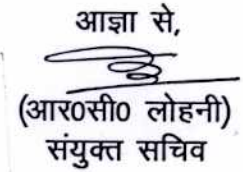 आज्ञा से,
(आर0सी0 लोहनी)
संयुक्त सचिव